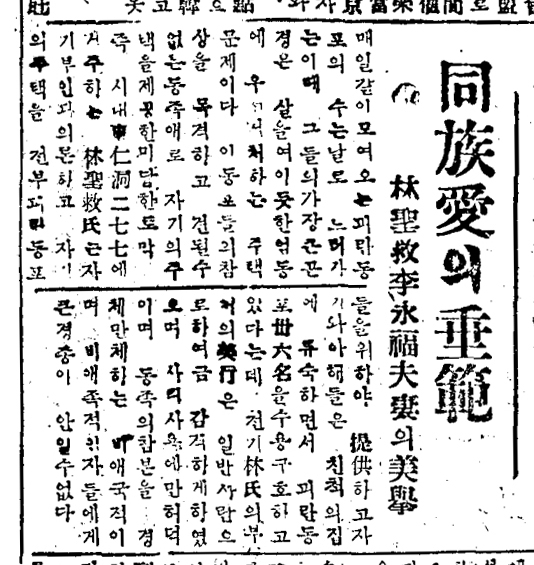 同族愛의 垂範
林聖救李永福夫妻의美擧
매일같이모여오는피란동
포의 수는날로 느러가
는이때 그들의가장큰곤
경은 살을여이듯한엄동
에 우선거처하는 주택
문제이다 이동포들의참
상을 목격하고 견딜수
없는동족애로 자기의주
택을제공한미담한토막
즉 시내東仁洞二七七에
거주하는 林聖救氏는자
기부인과의론하고 자기
의주택을 전부피란동포
들을위하야 提供하고자
기와아해들은 친척의집
에 류숙하면서 피란동
포卅六名을수용구호하고
있다는데 전기林氏의부
처의美行은 일반사람으
로하여금 감격하게하였
으며 사리사욕에만허덕
이며 동족의참분을 경
체만체하는 비애국적이
며 비애족적인자들에게
큰경종이 안일수없다